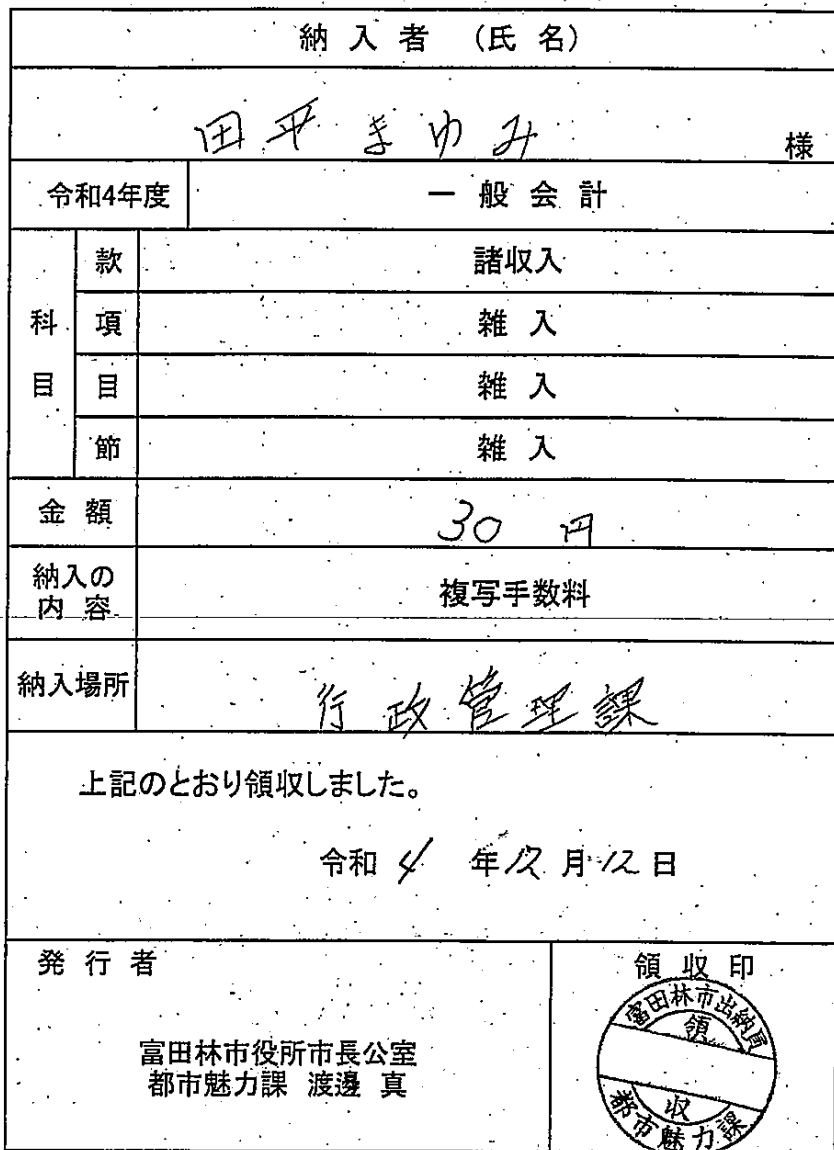 納入者 (氏名)
田平 まゆみ 様
令和4年度 一般会計
科目 款 諸収入
項 雑入
目 雑入
節 雑入
金額 30 円
納入の内容 複写手数料
納入場所 行政管理課
上記のとおり領収しました。
令和 4 年 12 月 12 日
発行者
富田林市役所市長公室
都市魅力課 渡邊 真
領収印
富田林市出納員
領
収
都市魅力課